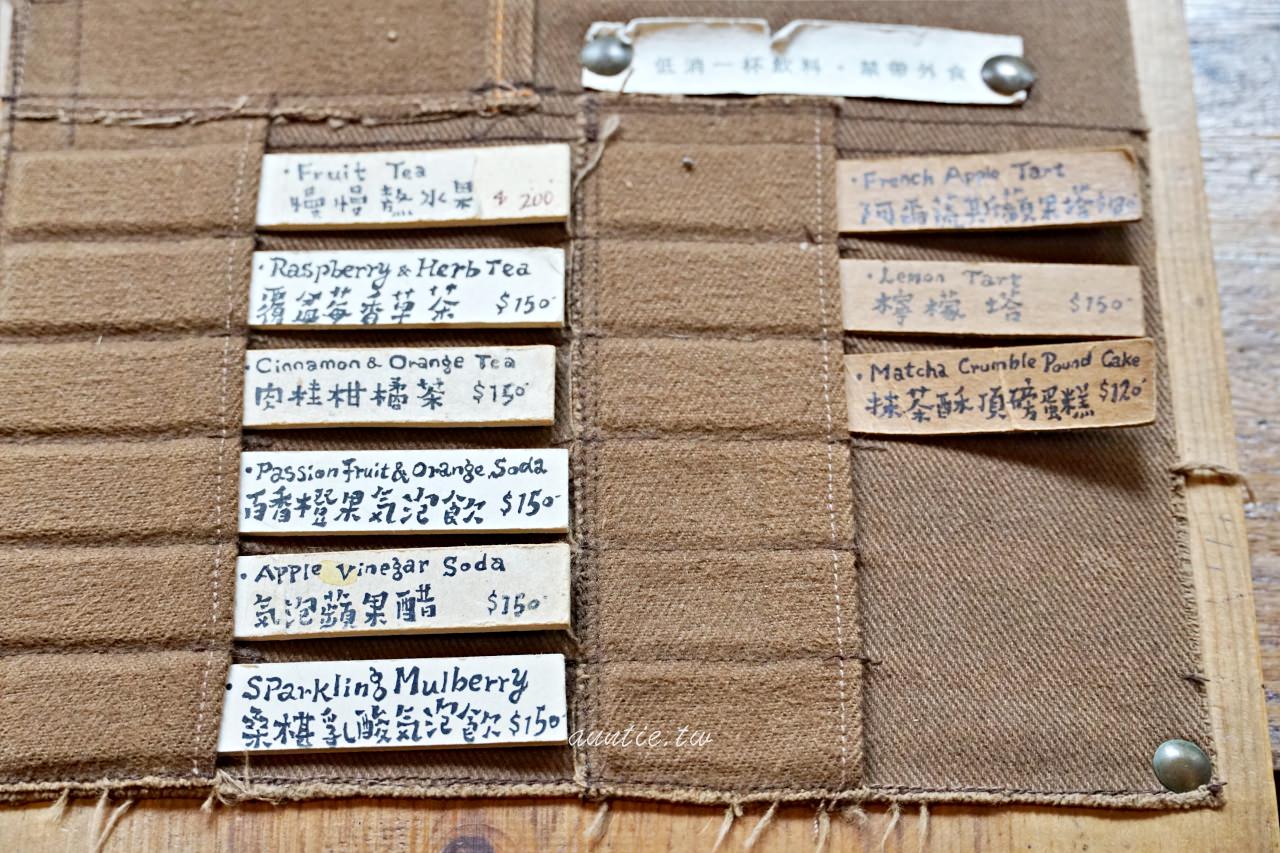 低消一杯飲料・禁帶外食
·Fruit Tea
慢慢熬水果 $200
·Raspberry & Herb Tea
覆盆莓香草茶 $150-
·Cinnamon & Orange Tea
肉桂柑橘茶 $150-
·Passion fruit & Orange Soda
百香橙果氣泡飲 $150-
·Apple Vinegar Soda
氣泡蘋果醋 $150-
·Sparkling Mulberry
桑椹乳酸氣泡飲 $150-
·French Apple Tart
阿爾薩斯蘋果塔
·Lemon Tart
檸檬塔 $150-
·Matcha Crumble Pound Cake
抹茶酥頂磅蛋糕 $120-
auntie.tw